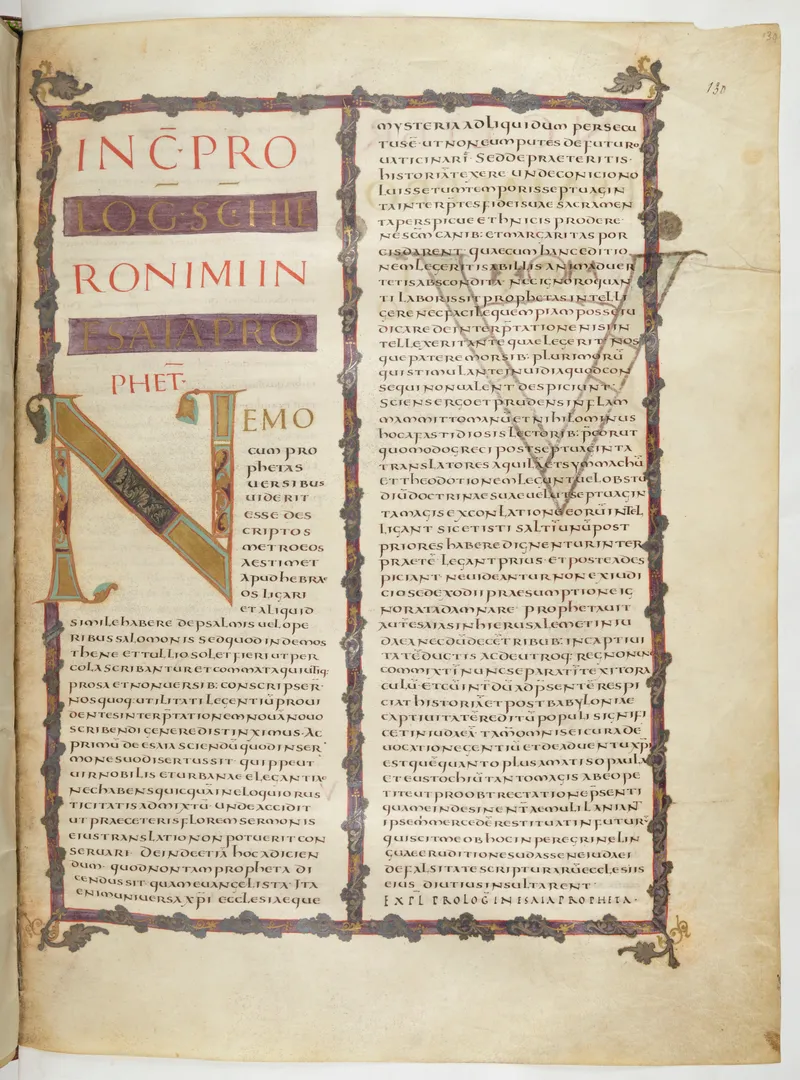 130
INC̅·PRO
LOG·S·C̅HII
RONIMI IN
ESAIA PRO
PHET·
NEMO
CUM PRO
PHETAS
UERSIBUS
UIDERIT
ESSE DES
CRIPTOS
METRO EOS
AESTIMET
APUD HEBRAE
OS LIGARI
ET ALIQUID
SIMILE HABERE DE PSALMIS UEL OPE
RIBUS SALOMONIS SED QUOD IN DEMOS
THENE ET TULLIO SOLET FIERI UT PER
COLA SCRIBANTUR ET COMMATA QUI UTIQ:
PROSA ET NON UERSIB: CONSCRIPSER·
NOS QUOQ· UTILITATI LEGENTIŪ PROUI
DENTES INTERPTATIONEM NOUĀ NOUO
SCRIBENDI GENERE DISTINXIMUS· AC
PRIMŪ DE ESAIA SCIENDŪ QUOD IN SER
MONE SUO DISERTUS SIT· QUIPPE UT
UIR NOBILIS ET URBANAE ELEGANTIAE
NEC HABENS QUICQUĀ IN ELOQUIO RUS
TICITATIS ADMIXTŪ· UNDE ACCIDIT
UT PRAE CETERIS FLOREM SERMONIS
EIUS TRANSLATIO NON POTUERIT CON
SERUARI· DEINDE ETIĀ HOC ADICIEN
DUM· QUOD NON TAM PROPHETA DI
CENDUS SIT QUAM EUANGELISTA· ITA
ENIM UNIUERSA XP̅I ECCLESIAE QUE
MYSTERIA AD LIQUIDUM PERSECU
TUS Ē· UT NON EUM PUTES DE FUTURO
UATICINARI· SED DE PRAETERITIS·
HISTORIĀ TEXERE UNDE CONICIO NO
LUISSE TUM TEMPORIS SEPTUAGIN
TA INTERPTES FIDEI SUAE SACRAMEN
TA PERSPICUE ETHNICIS PRODERE·
NE SC̅M CANIB: ET MARGARITAS POR
CIS DARENT· QUAE CUM HANC EDITIO
NEM LEGERITIS AB ILLIS ANIMADUER
TETIS ABSCONDITA· NEC IGNORO QUAN
TI LABORIS SIT PROPHETAS INTELLI
GERE NEC FACILE QUEMPIAM POSSE IU
DICARE DE INTERPTATIONE NISI IN
TELLEXERIT ANTE QUAE LEGERIT· NOS
QUE PATERE MORSIB: PLURIMORŪ
QUI STIMULANTE INUIDIA QUOD CON
SEQUI NON UALENT DESPICIUNT·
SCIENS ERGO ET PRUDENS IN FLAM
MAM MITTO MANŪ ET NIHILOMINUS
HOC A FASTIDIOSIS LECTORIB: PCOR UT
QUOMODO GRECI POST SEPTUAGINTA
TRANSLATORES AQUILĀ ET SYMMACHŪ
ET THEODOTIONEM LEGUNT UEL OB STU
DIŪ DOCTRINAE SUAE UEL UT SEPTUAGIN
TA MAGIS EX CONLATIONE EORŪ INTEL
LIGANT SIC ET ISTI SALTIM UNŪ POST
PRIORES HABERE DIGNENTUR INTER
PRAETĒ· LEGANT PRIUS· ET POSTEA DES
PICIANT· NE UIDEANTUR NON EX IUDI
CIO SED EX ODII PRAESUMPTIONE IG
NORATA DAMNARE· PROPHETAUIT
AUTĒ ESAIAS IN HIERUSALEM ET IN IU
DAEA NECDŪ DECĒ TRIBUB: IN CAPTIUI
TATĒ DUCTIS AC DE UTROQ: REGNO NUNC
COMMIXTĪ NUNC SEPARATĪ TEXIT ORA
CULŪ· ET CŪ INTDŪ AD PSENTĒ RESPI
CIAT HISTORIĀ ET POST BABYLONIAE
CAPTIUITATĒ REDITŪ POPULI SIGNIFI
CET IN IUDAEĀ TAM̄ OMNIS EI CURA DE
UOCATIONE GENTIŪ ET DE ADUENTU XP̅I
EST QUĒ QUANTO PLUS AMATIS O PAULA
ET EUSTOCHIŪ TANTO MAGIS AB EO PE
TITE UT PRO OBTRECTATIONE PSENTI
QUA ME INDESINENTĒ AEMULI LANIANT
IPSE MERCEDĒ RESTITUAT IN FUTURŪ
QUI SCIT ME OB HOC IN PEREGRINE LIN
GUAE ERUDITIONE SUDASSE NE IUDAEI
DE FALSITATE SCRIPTURARŪ ECCLESIIS
EIUS DIUTIUS INSULTARENT·
EXPL PROLOG̅ IN ISAIA PROPHETA·